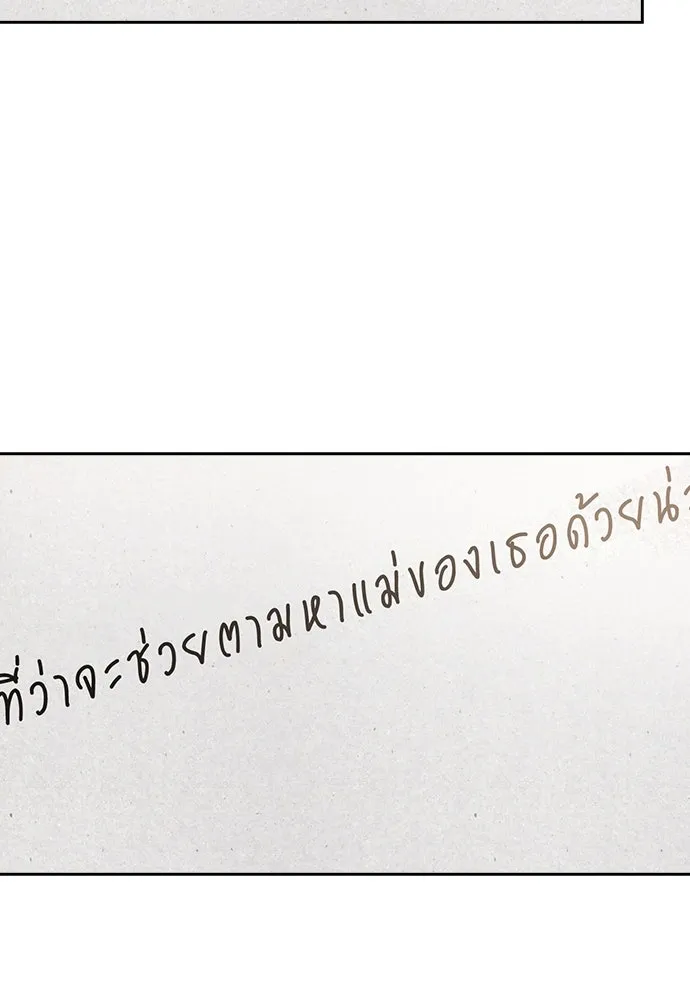 ที่ว่าจะช่วยตามหาแม่ของเธอด้วยน่ะ